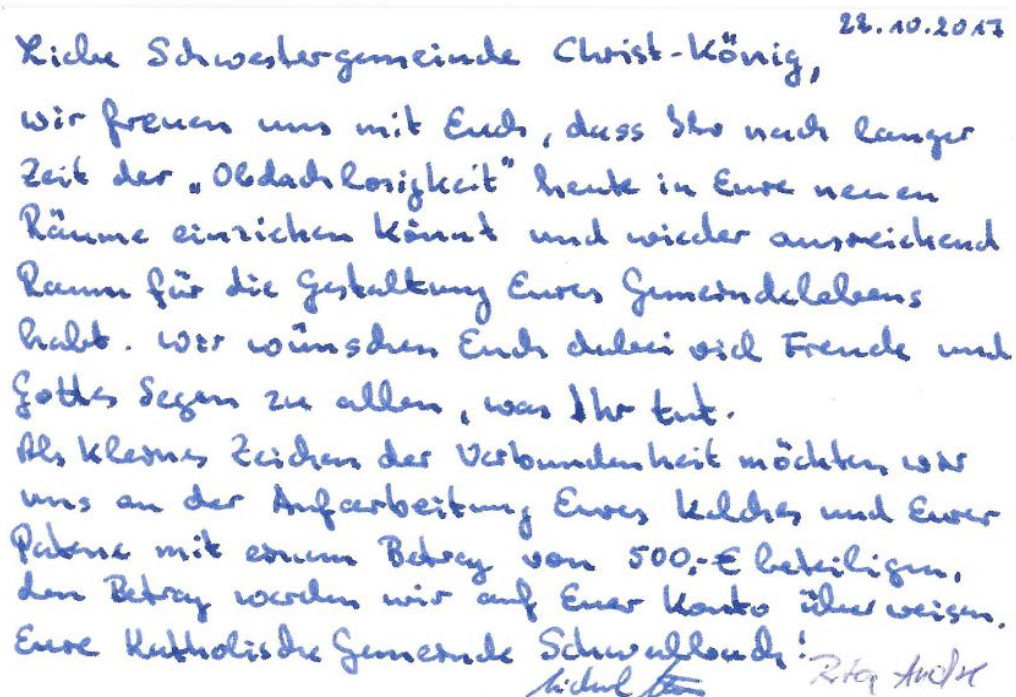 22.10.2017
Liebe Schwestergemeinde Christ-König,
wir freuen uns mit Euch, dass Ihr nach langer
Zeit der „Obdachlosigkeit" heute in Eure neuen
Räume einziehen könnt und wieder ausreichend
Raum für die Gestaltung Eures Gemeindelebens
habt. Wir wünschen Euch dabei viel Freude und
Gottes Segen zu allem, was Ihr tut.
Als kleines Zeichen der Verbundenheit möchten wir
uns an der Aufarbeitung Eures Kelches und Eurer
Patene mit einem Betrag von 500,-€ beteiligen,
den Betrag werden wir auf Euer Konto überweisen.
Eure Katholische Gemeinde Schwalbach!
Michael Rita André